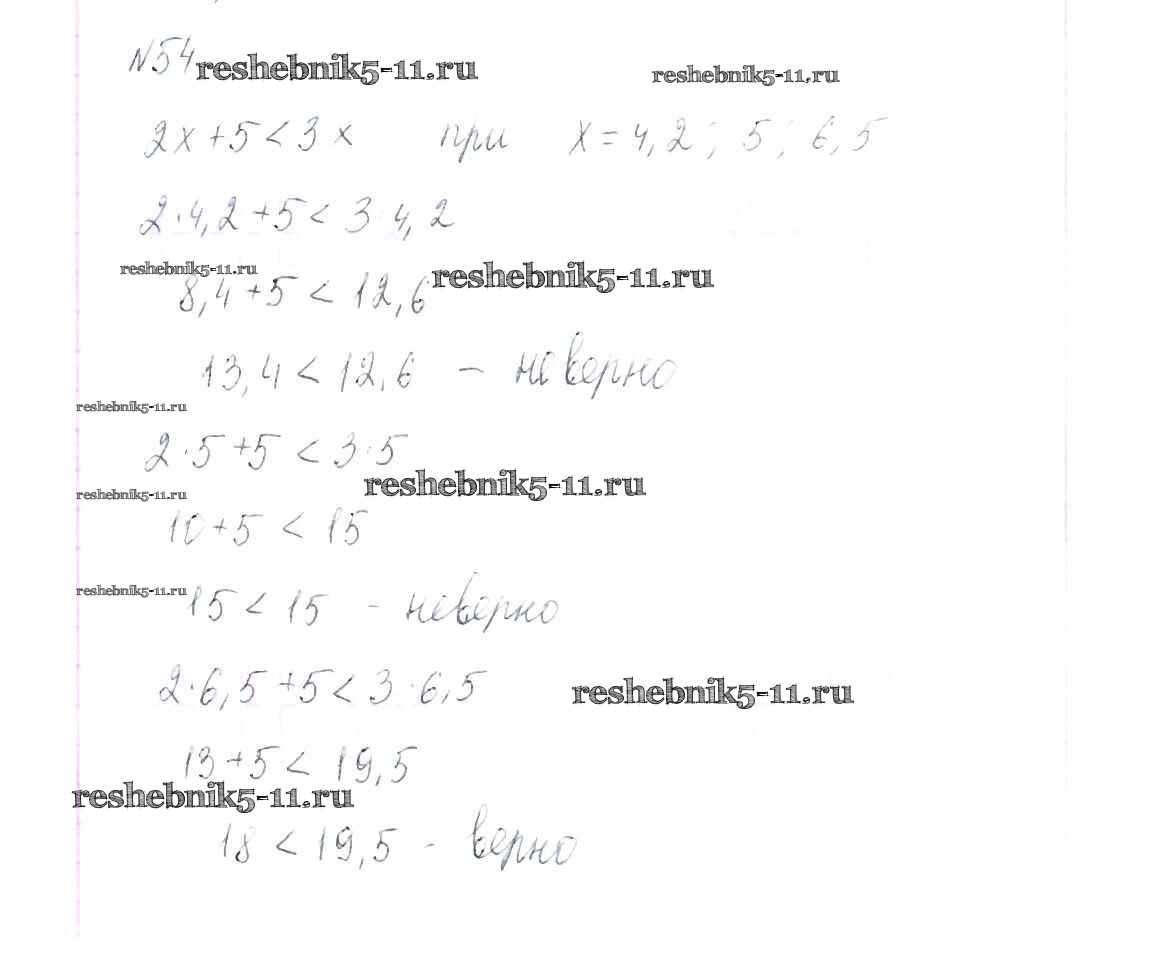 N54 reshebnik5-11.ru reshebnik5-11.ru
2x+5<3x при x=4,2; 5; 6,5
2·4,2+5<3·4,2
reshebnik5-11.ru reshebnik5-11.ru
8,4+5<12,6
13,4<12,6 – неверно
reshebnik5-11.ru
2·5+5<3·5
reshebnik5-11.ru reshebnik5-11.ru
10+5<15
reshebnik5-11.ru
15<15 - неверно
2·6,5+5<3·6,5 reshebnik5-11.ru
13+5<19,5
reshebnik5-11.ru
18<19,5 - верно